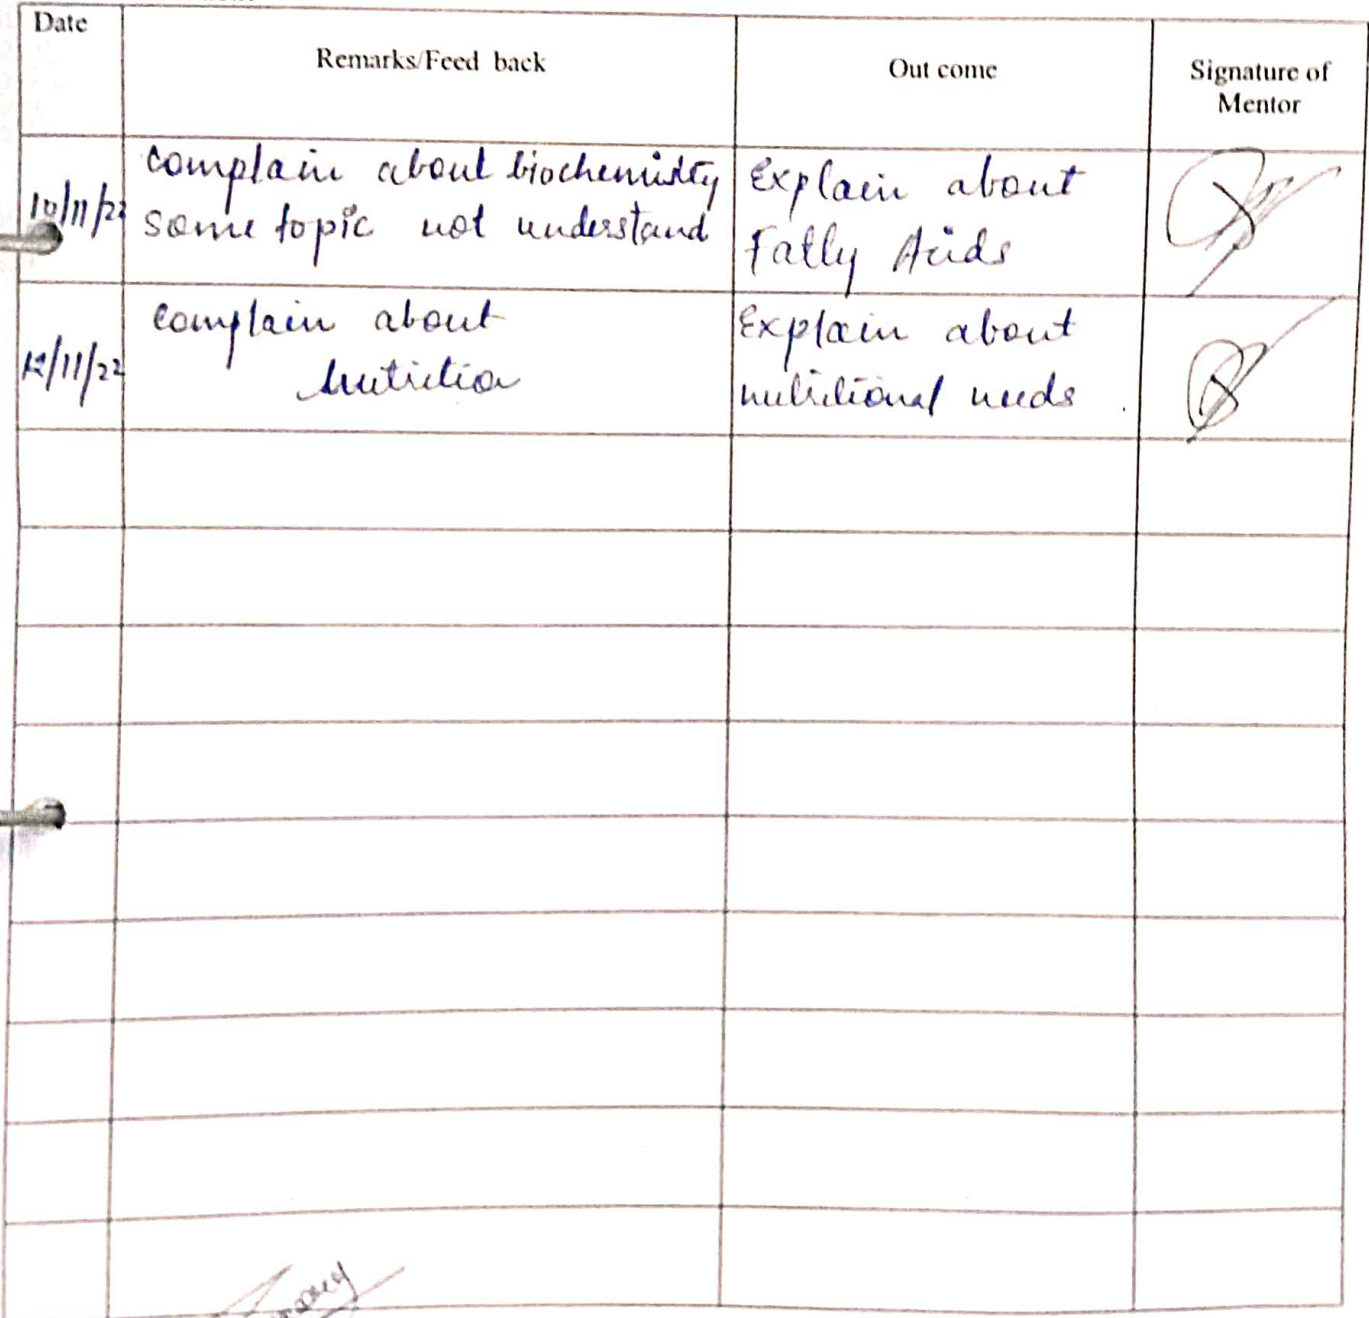 Date
Remarks/Feed back
Out come
Signature of
Mentor
10/11/22
complain about biochemistry
some topic not understand
Explain about
Fatty Acids
12/11/22
complain about
Nutrition
Explain about
nutritional needs.